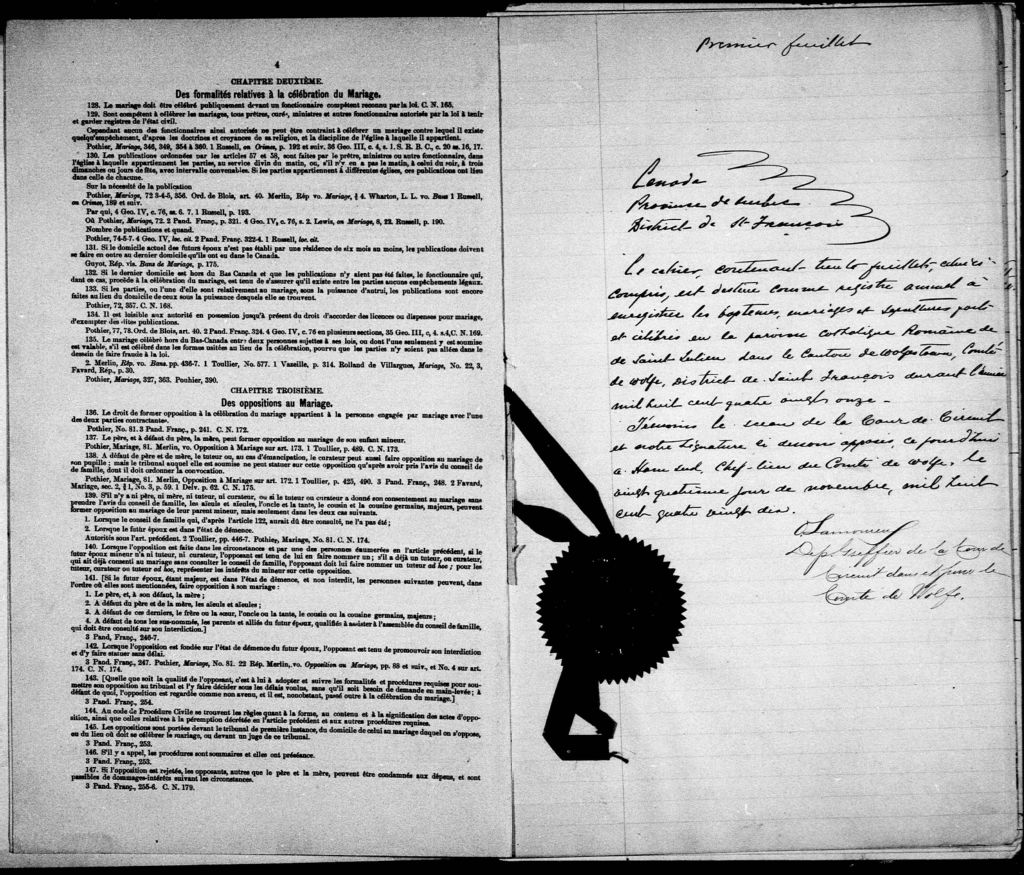 4
CHAPITRE DEUXIÈME.
Des formalités relatives à la célébration du Mariage.
128. Le mariage doit être célébré publiquement devant un fonctionnaire compétent reconnu par la loi. C. N. 165.
129. Sont compétent à célébrer les mariages, tous prêtres, curés, ministres et autres fonctionnaires autorisés par la loi à tenir
et garder registres de l'état civil.
Cependant aucun des fonctionnaires ainsi autorisés ne peut être contraint à célébrer un mariage contre lequel il existe
quelqu'empêchement, d'apres les doctrines et croyances de sa religion, et la discipline de l'église à laquelle il appartient.
Pothier, Mariage, 346, 349, 354 à 360. 1 Russell, on Crimes, p. 192 et suiv. 36 Geo. III, c. 4, s. 1. S. R. B. C., c. 20 ss. 16, 17.
130. Les publications ordonnées par les articles 57 et 58, sont faites par le prêtre, ministre ou autre fonctionnaire, dans
l'église à laquelle appartiennent les parties, au service divin du matin, ou, s'il n'y en a pas le matin, à celui du soir, à trois
dimanches ou jours de fête, avec intervalle convenables. Si les parties appartiennent à différentes églises, ces publications ont lieu
dans celle de chacune.
Sur la nécessité de la publication
Pothier, Mariage, 72 3-4-5, 356. Ord. de Blois, art. 40. Merlin, Rép vo. Mariage, § 4. Wharton, L. L. vo. Bans 1 Russell,
on Crimes, 189 et suiv.
Par qui, 4 Geo. IV, c. 76, ss. 6. 7. 1 Russell, p. 193.
Où Pothier, Mariage, 72. 2 Pand. Franç., p. 321. 4 Geo. IV, c. 76, s. 2. Lewis, on Mariage, 8, 22. Russell, p. 190.
Nombre de publications et quand.
Pothier, 74-5-7. 4 Geo. IV, loc. cit. 2 Pand. Franç. 322-4. 1 Russell, loc. cit.
131. Si le domicile actuel des futurs époux n'est pas établi par une résidence de six mois au moins, les publications doivent
se faire en outre au dernier domicile qu'ils ont eu dans le Canada.
Guyot, Rép. vis. Bans de Mariage, p. 175.
132. Si le dernier domicile est hors du Bas Canada et que les publications n'y aient pas été faites, le fonctionnaire qui,
dans ce cas, procède à la célébration du mariage, est tenu de s'assurer qu'il existe entre les parties aucuns empêchements légaux.
133. Si les parties, ou l'une d'elles sont relativement au mariage, sous la puissance d'autrui, les publications sont encore
faites au lieu du domicile de ceux sous la puissance desquels elle se trouvent.
Pothier, 72, 357. C. N. 168.
134. Il est loisible aux autorité en possession jusqu'à présent du droit d'accorder des licences ou dispenses pour mariage,
d'exempter des dites publications.
Pothier, 77, 78. Ord. de Blois, art. 40. 2 Pand. Franç. 324. 4 Geo. IV, c. 76 en plusieurs sections, 35 Geo. III, c, 4. s.4,C. N. 169.
135. Le mariage célébré hors du Bas-Canada entre deux personnes sujettes à ses lois, ou dont l'une seulement y est soumise
est valable, s'il est célébré dans les formes usitées au lieu de la célébration, pourvu que les parties n'y soient pas allées dans le
dessein de faire fraude à la loi.
2. Merlin, Rép. vo. Bans. pp. 436-7. 1 Toullier, No. 577. 1 Vazeille, p. 314. Rolland de Villargues, Mariage, No. 22, 3,
Favard, Rép., p. 30.
Pothier, Mariage, 327, 363. Pouhier, 390.
CHAPITRE TROISIÈME.
Des oppositions au Mariage.
136. Le droit de former opposition à la célébration du mariage appartient à la personne engagée par mariage avec l'une
des deux parties contractantes.
Pothier, No. 81. 3 Pand. Franç., p. 241. C. N. 172.
137. Le père, et à défaut du père, la mère, peut former opposition au mariage de son enfant mineur.
Pothier, Mariage, 81. Merlin, vo. Opposition à Mariage sur art. 173. 1 Toullier, p. 489. C. N. 173.
138. A défaut de père et de mère, le tuteur ou, au cas d'émancipation, le curateur peut aussi faire opposition au mariage de
son pupille ; mais le tribunal auquel elle est soumise ne peut statuer sur cette opposition qu'après avoir pris l'avis du conseil de
de famille, dont il doit ordonner la convocation.
Pothier, Mariage, 81. Merlin, Opposition à Mariage sur art. 172. 1 Toullier, p. 425, 490. 3 Pand. Franç., 248. 2 Favard,
Mariage, sec. 2, § 1, No. 3, p. 59. 1 Delv. p. 62. C. N. 175.
139. S'il n'y a ni père, ni mère, ni tuteur, ni curateur, ou si le tuteur ou curateur a donné son consentement au mariage sans
prendre l'avis du conseil de famille, les aïeuls et aïeules, l'oncle et la tante, le cousin et la cousine germains, majeurs, peuvent
former opposition au mariage de leur parent mineur, mais seulement dans les deux cas suivants.
1. Lorsque le conseil de famille qui, d'après l'article 122, aurait dû être consulté, ne l'a pas été ;
2. Lorsque le futur époux est dans l'état de démence.
Autorités sous l'art. précédent. 2 Toullier, pp. 446-7. Pothier, Mariage, No. 81. C. N. 174.
140. Lorsque l'opposition est faite dans les circonstances et par une des personnes énumérées en l'article précédent, si le
futur époux mineur n'a ni tuteur, ni curateur, l'opposant est tenu de lui en faire nommer un ; s'il a déjà un tuteur, ou curateur,
qui ait déjà consenti au mariage sans consulter le conseil de famille, l'opposant doit lui faire nommer un tuteur ad hoc ; pour les
tuteur, curateur ou tuteur ad hoc, représenter les intérêts du mineur sur cette opposition.
141. [Si le futur époux, étant majeur, est dans l'état de démence, et non interdit, les personnes suivantes peuvent, dans
l'ordre où elles sont mentionnées, faire opposition à son mariage :
1. Le père, et, à son défaut, la mère ;
2. A défaut du père et de la mère, les aïeuls et aïeules ;
3. A défaut de ces derniers, le frère ou la sœur, l'oncle ou la tante, le cousin ou la cousine germains, majeurs ;
4. A défaut de tous les sus-nommés, les parents et alliés du futur époux, qualifiés à assister à l'assemblée du conseil de famille,
qui doit être consulté sur son interdiction.]
3 Pand, Franç., 246-7.
142. Lorsque l'opposition est fondée sur l'état de démence du futur époux, l'opposant est tenu de promouvoir son interdiction
et d'y faire statuer sans délai.
3 Pand. Franç., 247. Pothier, Mariage, No. 81. 22 Rép. Merlin, vo. Opposition au Mariage, pp. 88 et suiv., et No. 4 sur art.
174. C. N. 174.
143. [Quelle que soit la qualité de l'opposant, c'est à lui à adopter et suivre les formalités et procédures requises pour sou-
mettre son opposition au tribunal et l'y faire décider sous les délais voulus, sans qu'il soit besoin de demande en main-levée ; à
défaut de quoi, l'opposition est regardée comme non avenu, et il est, nonobstant, passé outre à la célébration du mariage.]
3 Pand. Franç., 254.
144. Au code de Procédure Civile se trouvent les règles quant à la forme, au contenu et à la signification des actes d'oppo-
sition, ainsi que celles relatives à la péremption décrétée en l'article précédent et aux autres procédures requises.
145. Les oppositions sont portées devant le tribunal de première instance, du domicile de celui au mariage duquel on s'oppose,
ou du lieu où doit se célébrer le mariage, ou devant un juge de ce tribunal.
3 Pand. Franç., 253.
146. S'il y a appel, les procédures sont sommaires et elles ont préséance.
3 Pand. Franç., 253.
147. Si l'opposition est rejetée, les opposants, autres que le père et la mère, peuvent être condamnés aux dépens, et sont
passibles de dommages-intérêts suivant les circonstances.
3 Pand. Franç., 255-6. C. N. 179.
Premier feuillet
Canada
Province de Québec
District de St François
Le cahier, contenant trente feuillets, celui ci
compris, est destiné comme registre annuel à
enregistrer les baptemes, mariages et sepultures faits
et célébrés en la paroisse catholique Romaine de
de Saint Julien dans le Canton de Wolfestown, Comté
de Wolfe, District de Saint François durant l'année
mil huit cent quatre vingt onze -
Témoins le sceau de la Cour de Circuit
et notre signature ci dessous apposés, ce jourd'hui
à Ham Sud, Chef-lieu du Comté de Wolfe, le
vingt quatrieme jour de novembre, mil huit
cent quatre vingt dix.
Dep Greffier de la Cour de
Circuit dans et pour le
Comté de Wolfe.